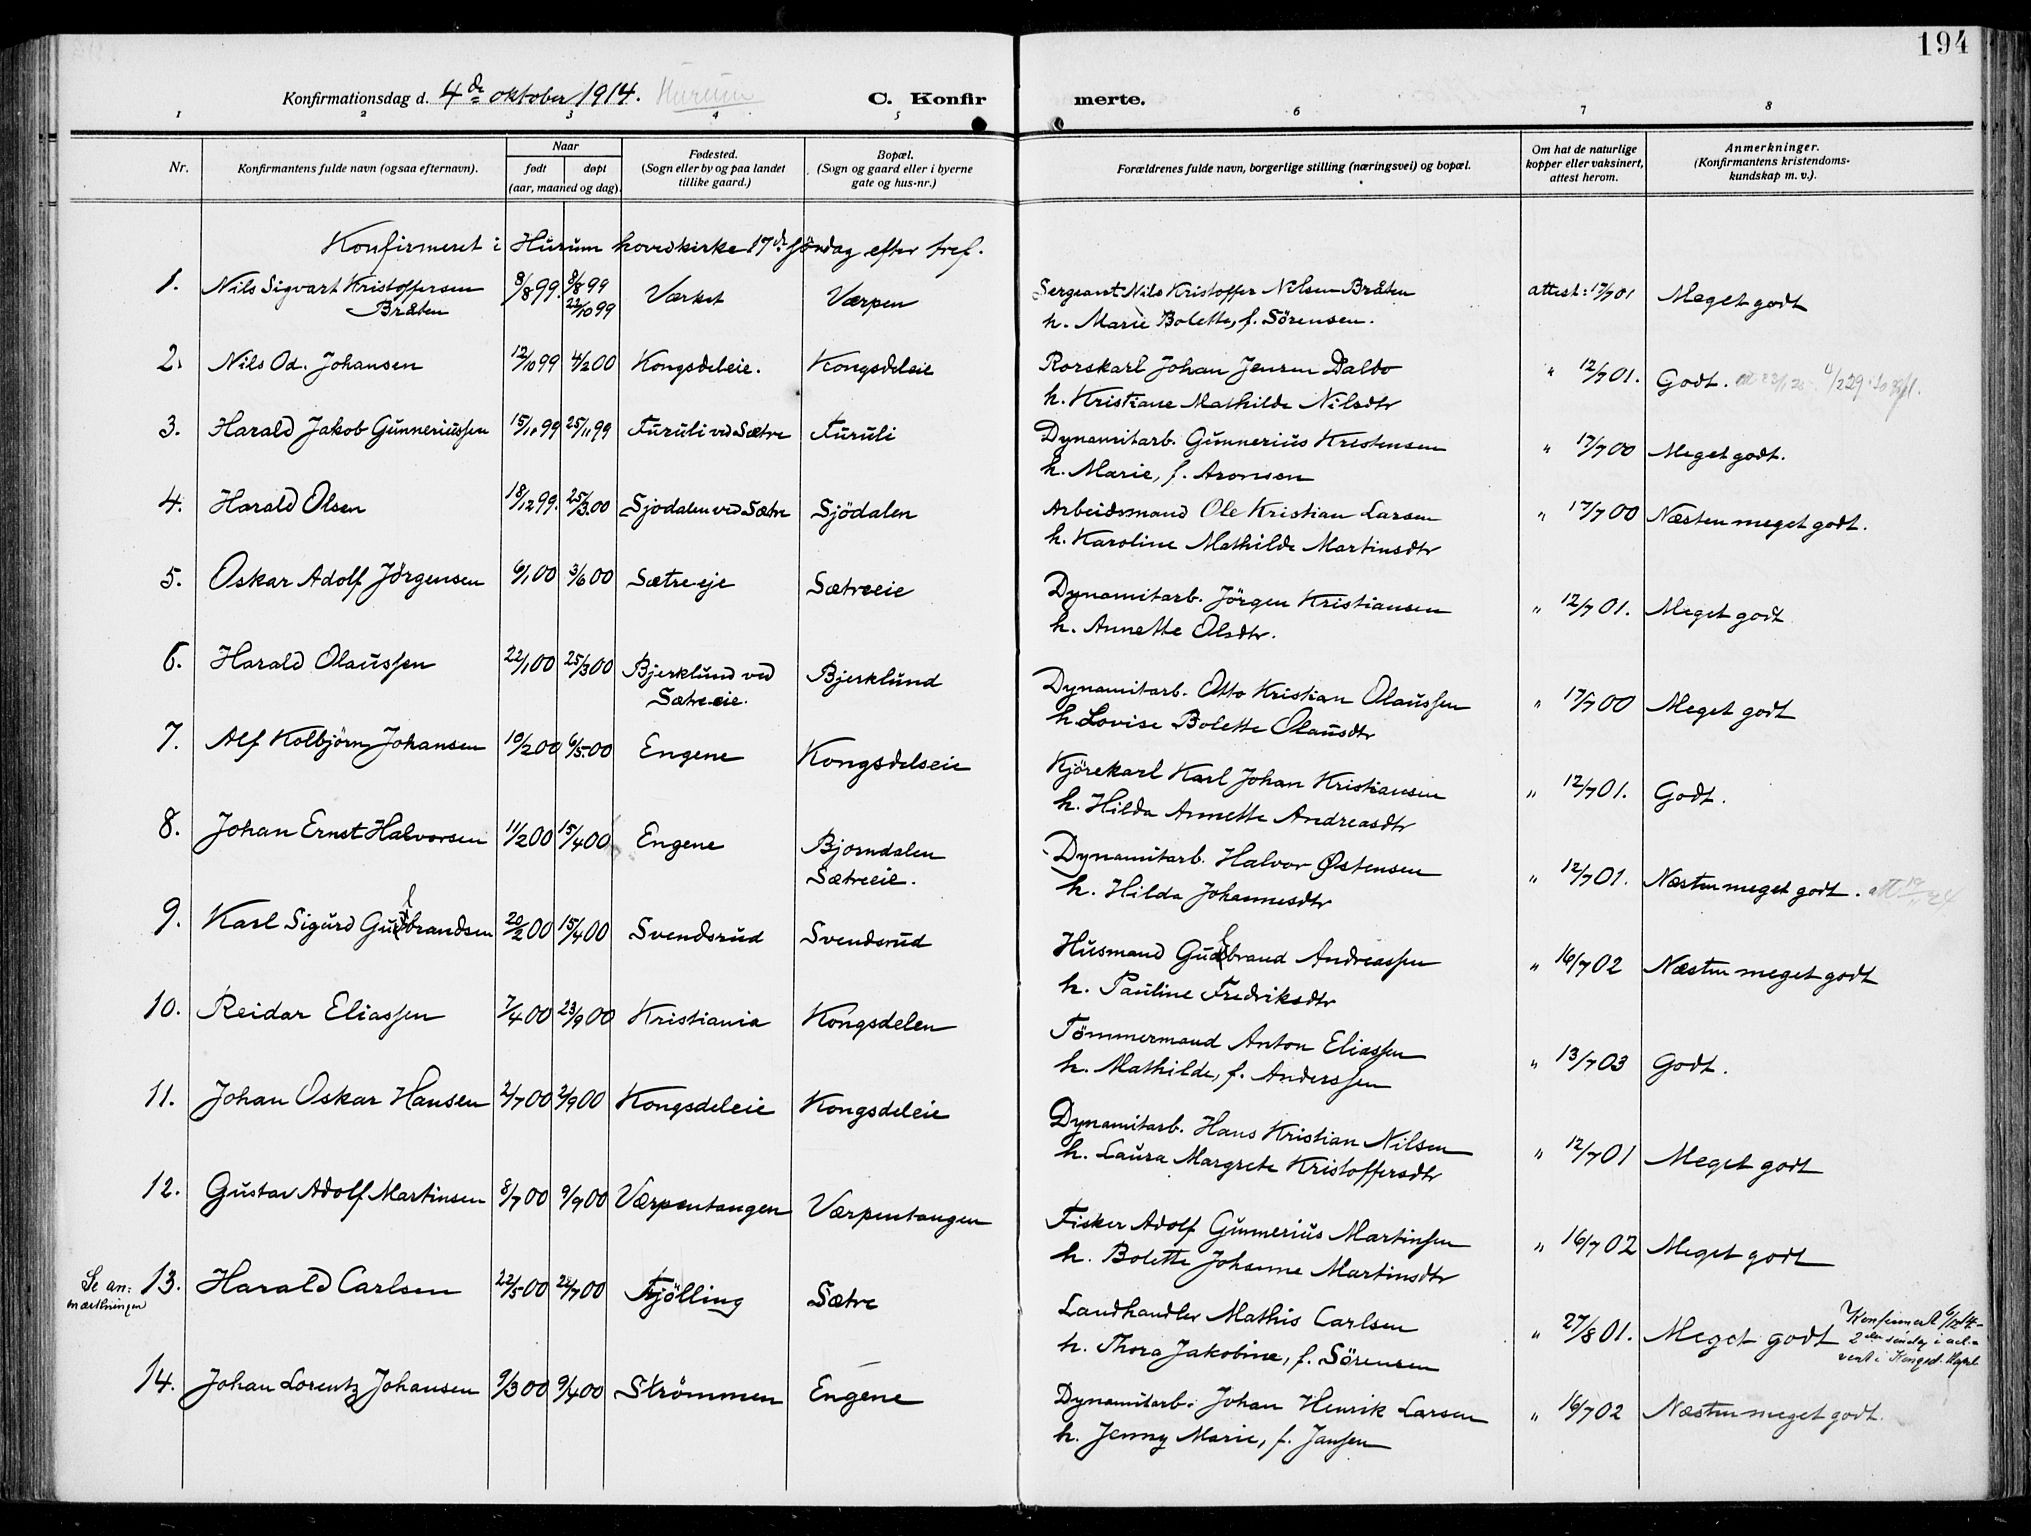 194
Konfirmationsdag d. 4de oktober 1914. Hurum C. Konfirmerte.
1 2 3 4 5 6 7 8
Nr. Konfirmantens fulde navn (ogsaa efternavn). Naar født døpt (aar, maaned og dag). Fødested. (Sogn eller by og paa landet tillike gaard.) Bopæl. (Sogn og gaard eller i byerne gate og hus-nr.) Forældrenes fulde navn, borgerlige stilling (næringsvei) og bopæl. Om hat de naturlige kopper eller vaksinert, attest herom. Anmerkninger. (Konfirmantens kristendomskundskap m. v.).
Konfirmeret i Hurum hovedkirke 17de søndag efter tref.
1. Nils Sigvart Kristoffersen 8/8 99. 8/8 99 Værket Værpen Sergeant Nils Kristoffer Nilsen Bråten attest: 17/7 01 Meget godt
Bråten 22/10 99 h. Marie Bolette, f. Sörensen.
2. Nils Od. Johansen 12/10 99 4/2 00 Kongsdeleie. Kongsdeleie Rorskarl Johan Jensen Dalbo " 12/7 01. Godt.
h. Kristiane Mathilde Nilsdtr
3. Harald Jakob Gunneriussen 15/10 99 25/11 99 Furuli ved Sætre Furuli Dynamitarb. Gunnerius Kristensen " 17/7 00 Meget godt.
h. Marie, f. Aronsen
4. Harald Olsen 18/12 99. 25/3 00 Sjödalen ved Sætre Sjödalen Arbeidsmand Ole Kristian Larsen " 17/7 00 Næsten meget godt.
h. Karoline Mathilde Martinsdtr
5. Oskar Adolf Jörgensen 6/1 00 3/6 00 Sætre eje Sætreeie Dynamitarb. Jörgen Kristiansen " 12/7 01. Meget godt
h. Annette Olsdtr.
6. Harald Olaussen 22/1 00 25/3 00 Bjerklund ved Bjerklund Dynamitarb. Otto Kristian Olaussen " 17/7 00 Meget godt
Sætreeie. h. Lovise Bolette Olausdtr
7. Alf Kolbjörn Johansen 10/2 00 6/5 00 Engene Kongsdelseie Kjörekarl Karl Johan Kristiansen " 12/7 01. Godt.
h. Hilda Annette Andreasdtr
8. Johan Ernst Halvorsen 11/2 00 15/4 00 Engene Bjorndalen Dynamitarb. Halvor Østensen " 12/7 01. Næsten meget godt.
Sætreeie. h. Hilda Johannesdtr
9. Karl Sigurd Gulbrandsen 20/2 00 15/4 00 Svendsrud Svendsrud Husmand Gulbrand Andreassen " 16/7 02 Næsten meget godt
h. Pauline Fredriksdtr
10. Reidar Eliassen 7/4 00 23/9 00 Kristiania Kongsdelen Tömmermand Anton Eliassen " 13/7 03 Godt.
h. Mathilde, f. Anderssen
11. Johan Oskar Hansen 2/7 00 2/9 00 Kongsdeleie Kongsdeleie Dynamitarb. Hans Kristian Nilsen " 12/7 01 Meget godt
h. Laura Margrete Kristoffersdtr
12. Gustav Adolf Martinsen 8/7 00 9/9 00 Værpentangen Værpentangen Fisker Adolf Gunnerius Martinsen " 16/7 02 Meget godt
h. Bolette Johanne Martinsdtr
Se an:
mærkningen
13. Harald Carlsen 22/5 00 22/7 00 Fjölling Sætre Landhandler Mathis Carlsen " 27/8 01. Meget godt Konfirmert 6/12 14
h. Thora Jakobine, f. Sörensen 2den søndag i ad-
vent i Kongsd. Kapel
14. Johan Lorentz Johansen 9/3 00 9/4 00 Strömmen Engene Dynamitarb. Johan Henrik Larsen " 16/7 02 Næsten meget godt.
h. Jenny Marie, f. Jansen